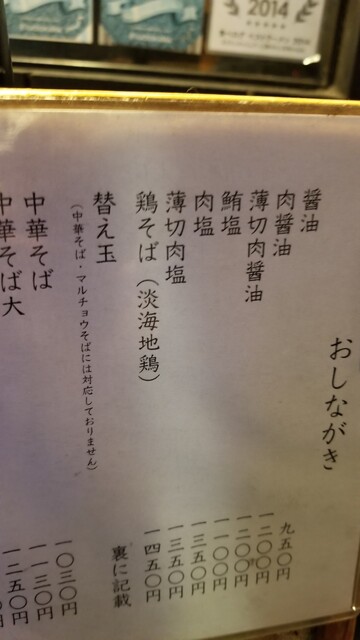 2014
おしながき
醤油 九五〇円
肉醤油 一二〇〇円
薄切肉醤油 一二〇〇円
鮪塩 一一〇〇円
肉塩 一三五〇円
薄切肉塩 一三五〇円
鶏そば（淡海地鶏） 一四五〇円
替え玉 裏に記載
（中華そば・マルチョウそばには対応しておりません）
中華そば 一〇三〇円
中華そば大 一一三〇円
一二五〇円